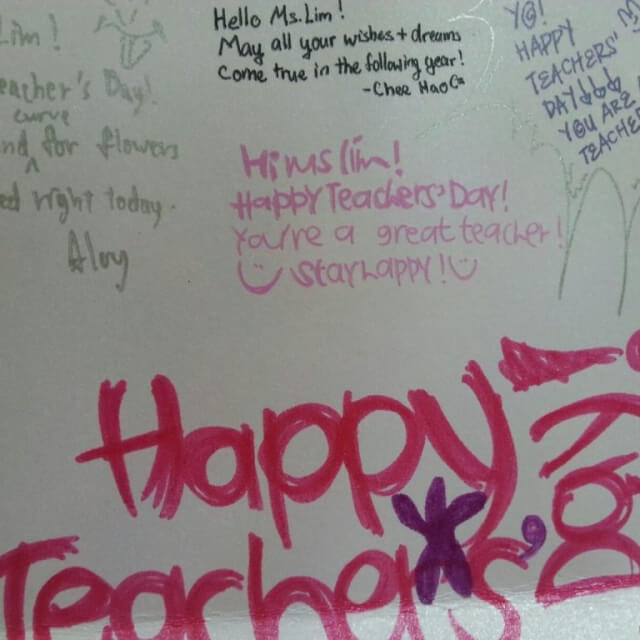 Lim!
eacher's Day!
curve
nd ^ for flowers
ed right today.
Aloy
Hello Ms.Lim!
May all your wishes + dreams
Come true in the following year!
-Chee Hao
YO!
HAPPY
TEACHERS'
DAY
YOU ARE
TEACHER
Hi ms lim!
Happy Teachers' Day!
You're a great teacher!
Stay happy!
Happy
Teachers'